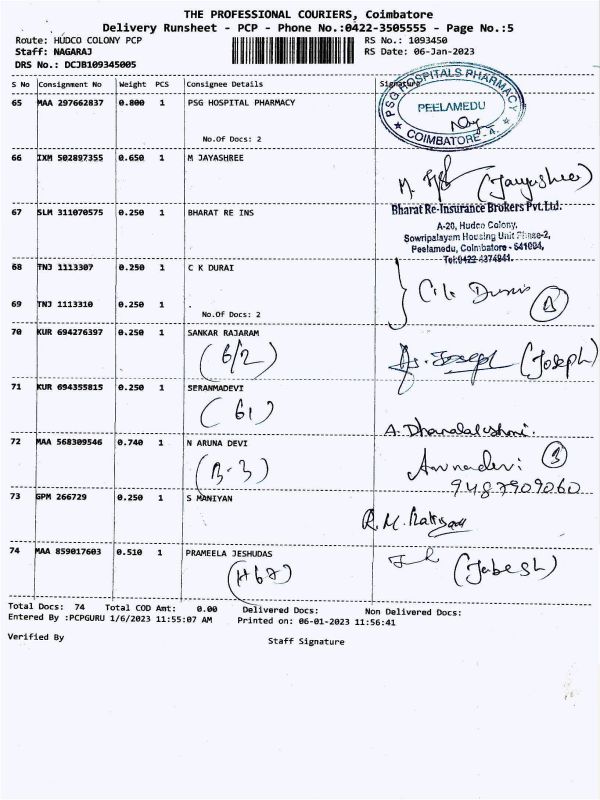 THE PROFESSIONAL COURIERS, Coimbatore
Delivery Runsheet - PCP - Phone No.:0422-3505555 - Page No.:5
Route: HUDCO COLONY PCP RS No.: 1093450
Staff: NAGARAJ RS Date: 06-Jan-2023
DRS No.: DCJB109345005
S No Consignment No Weight PCS Consignee Details Signature
65 MAA 297662837 0.800 1 PSG HOSPITAL PHARMACY
No.Of Docs: 2
PSG HOSPITALS PHARMACY
PEELAMEDU
COIMBATORE - 4.
66 IXM 502897355 0.650 1 M JAYASHREE
(Jayashree)
67 SLM 311070575 0.250 1 BHARAT RE INS
Bharat Re-Insurance Brokers Pvt.Ltd.
A-20, Hudco Colony,
Sowripalayam Housing Unit Phase-2,
Peelamedu, Coimbatore - 641004,
Tel:0422-4374941.
68 TNJ 1113307 0.250 1 C K DURAI
69 TNJ 1113310 0.250 1 .
No.Of Docs: 2
70 KUR 694276397 0.250 1 SANKAR RAJARAM
(6/2)
Joseph (Joseph)
71 KUR 694355815 0.250 1 SERANMADEVI
(61)
A. Dhanalakshmi.
72 MAA 568309546 0.740 1 N ARUNA DEVI
(B-3)
Arunadevi 3
9487909060
73 GPM 266729 0.250 1 S MANIYAN
R.M.
74 MAA 859017603 0.510 1 PRAMEELA JESHUDAS
(H67)
(Jabesh)
Total Docs: 74 Total COD Amt: 0.00 Delivered Docs: Non Delivered Docs:
Entered By :PCPGURU 1/6/2023 11:55:07 AM Printed on: 06-01-2023 11:56:41
Verified By Staff Signature